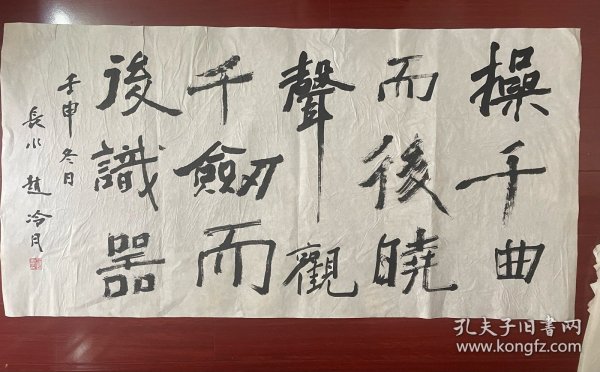 操千曲
而後曉
聲觀
千劒而
後識器
壬申冬日
長水趙冷月
孔夫子旧書网
www.kongfz.com